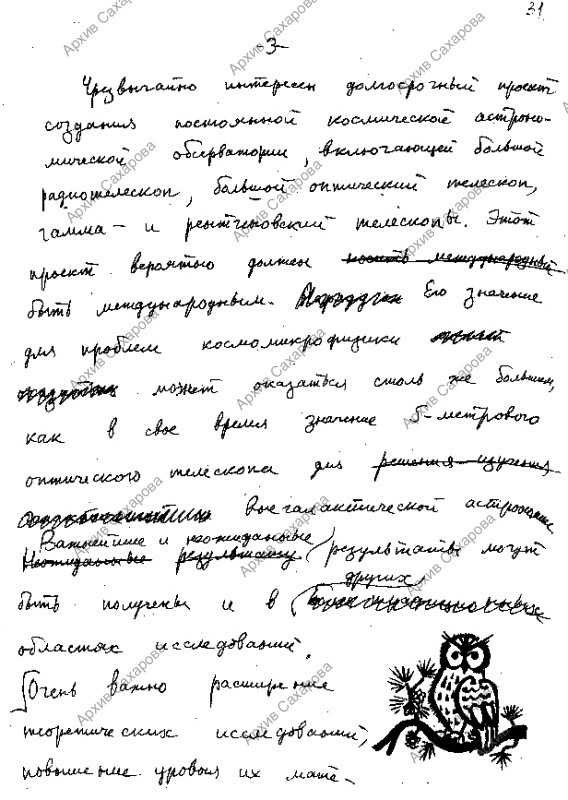 31
-3-
Чрезвычайно интересен долгосрочный проект
создания постоянной космической астроно-
мической обсерватории, включающей большой
радиотелескоп, большой оптический телескоп,
гамма- и рентгеновский телескопы. Этот
проект вероятно должен носить международный
быть международным. Его значение
для проблем космомикрофизики может
может оказаться столь же большим,
как в свое время значение 5-метрового
оптического телескопа для решения изучения
внегалактической астрономии
Важнейшие и неожиданные
Неожиданные результаты результаты могут
других
быть получены и в
областях исследований.
Очень важно расширение
теоретических исследований,
повышение уровня их мате-
Архив Сахарова